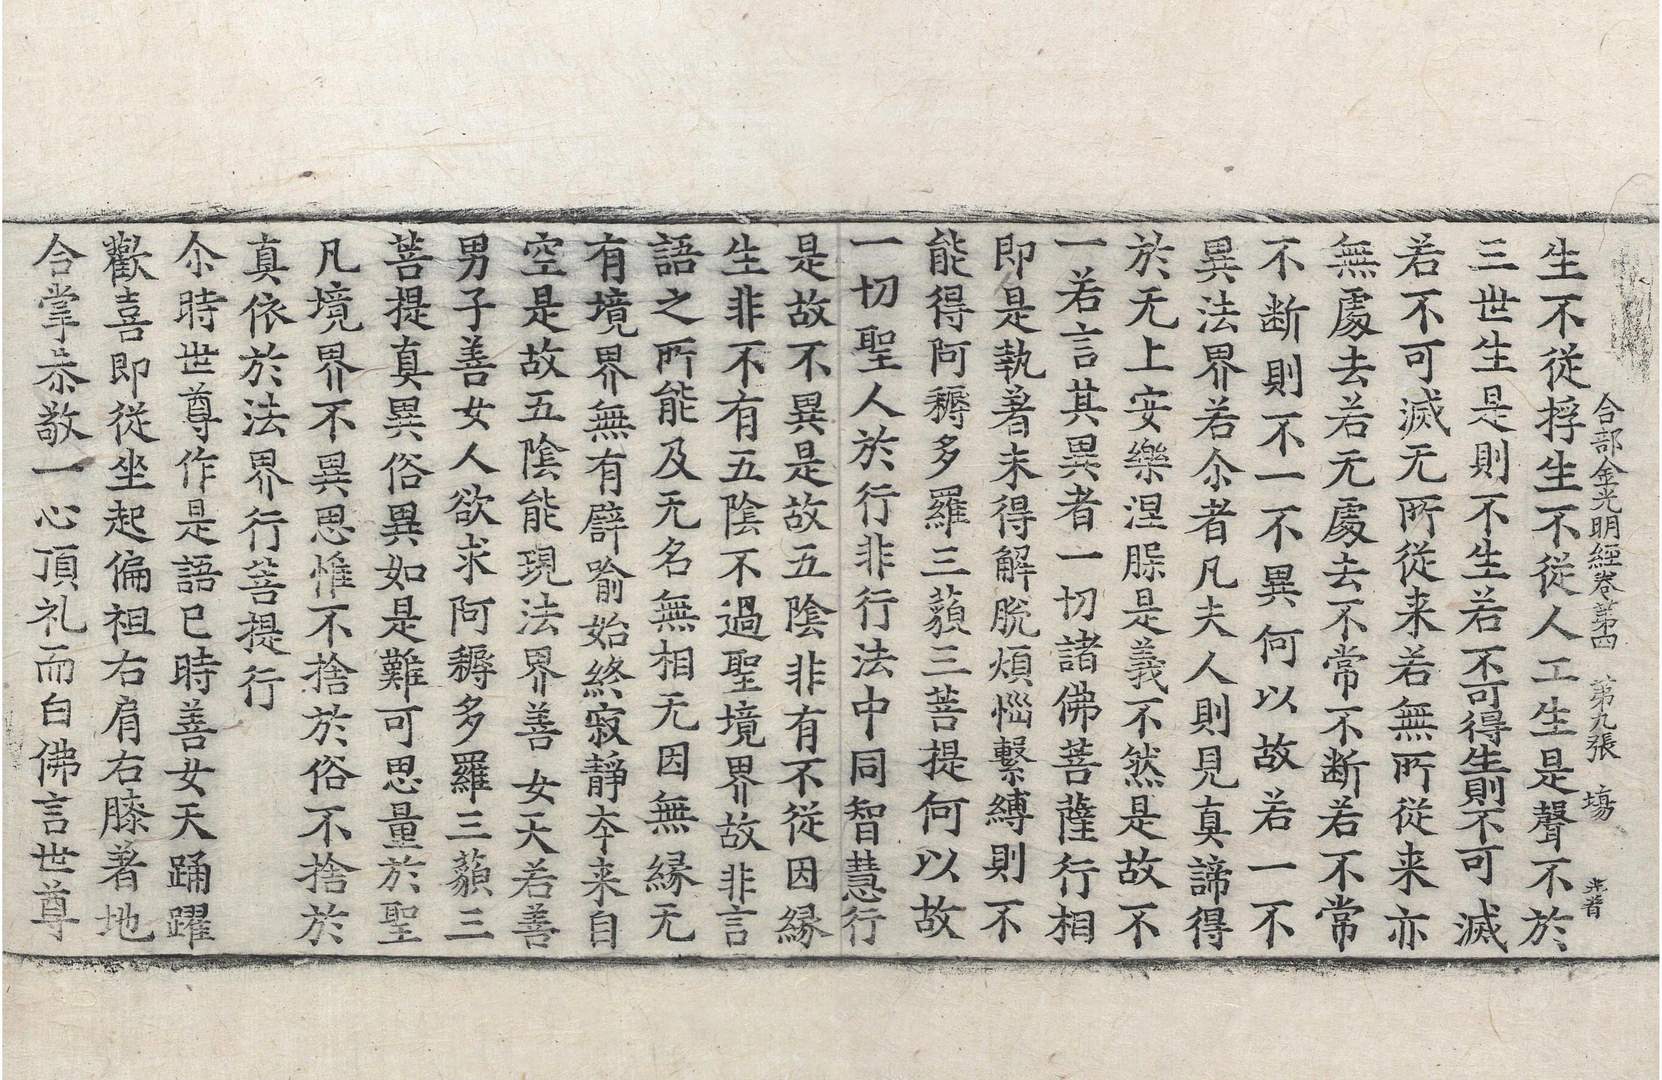 合部金光明經卷第四 第九張 塲 業普
生不從捊生不從人工生是聲不於
三世生是則不生若不可得生則不可滅
若不可滅无所從来若無所從来亦
無處去若无處去不常不断若不常
不断則不一不異何以故若一不
異法界若尒者凡夫人則見真諦得
於无上安樂涅槃是義不然是故不
一若言其異者一切諸佛菩薩行相
即是執著未得解脫煩惱繫縛則不
能得阿耨多羅三藐三菩提何以故
一切聖人於行非行法中同智慧行
是故不異是故五陰非有不從因緣
生非不有五陰不過聖境界故非言
語之所能及无名無相无因無緣无
有境界無有辟喻始終寂靜本来自
空是故五陰能現法界善女天若善
男子善女人欲求阿耨多羅三藐三
菩提真異俗異如是難可思量於聖
凡境界不異思惟不捨於俗不捨於
真依於法界行菩提行
尒時世尊作是語已時善女天踊躍
歡喜即從坐起偏袒右肩右膝著地
合掌恭敬一心頂礼而白佛言世尊